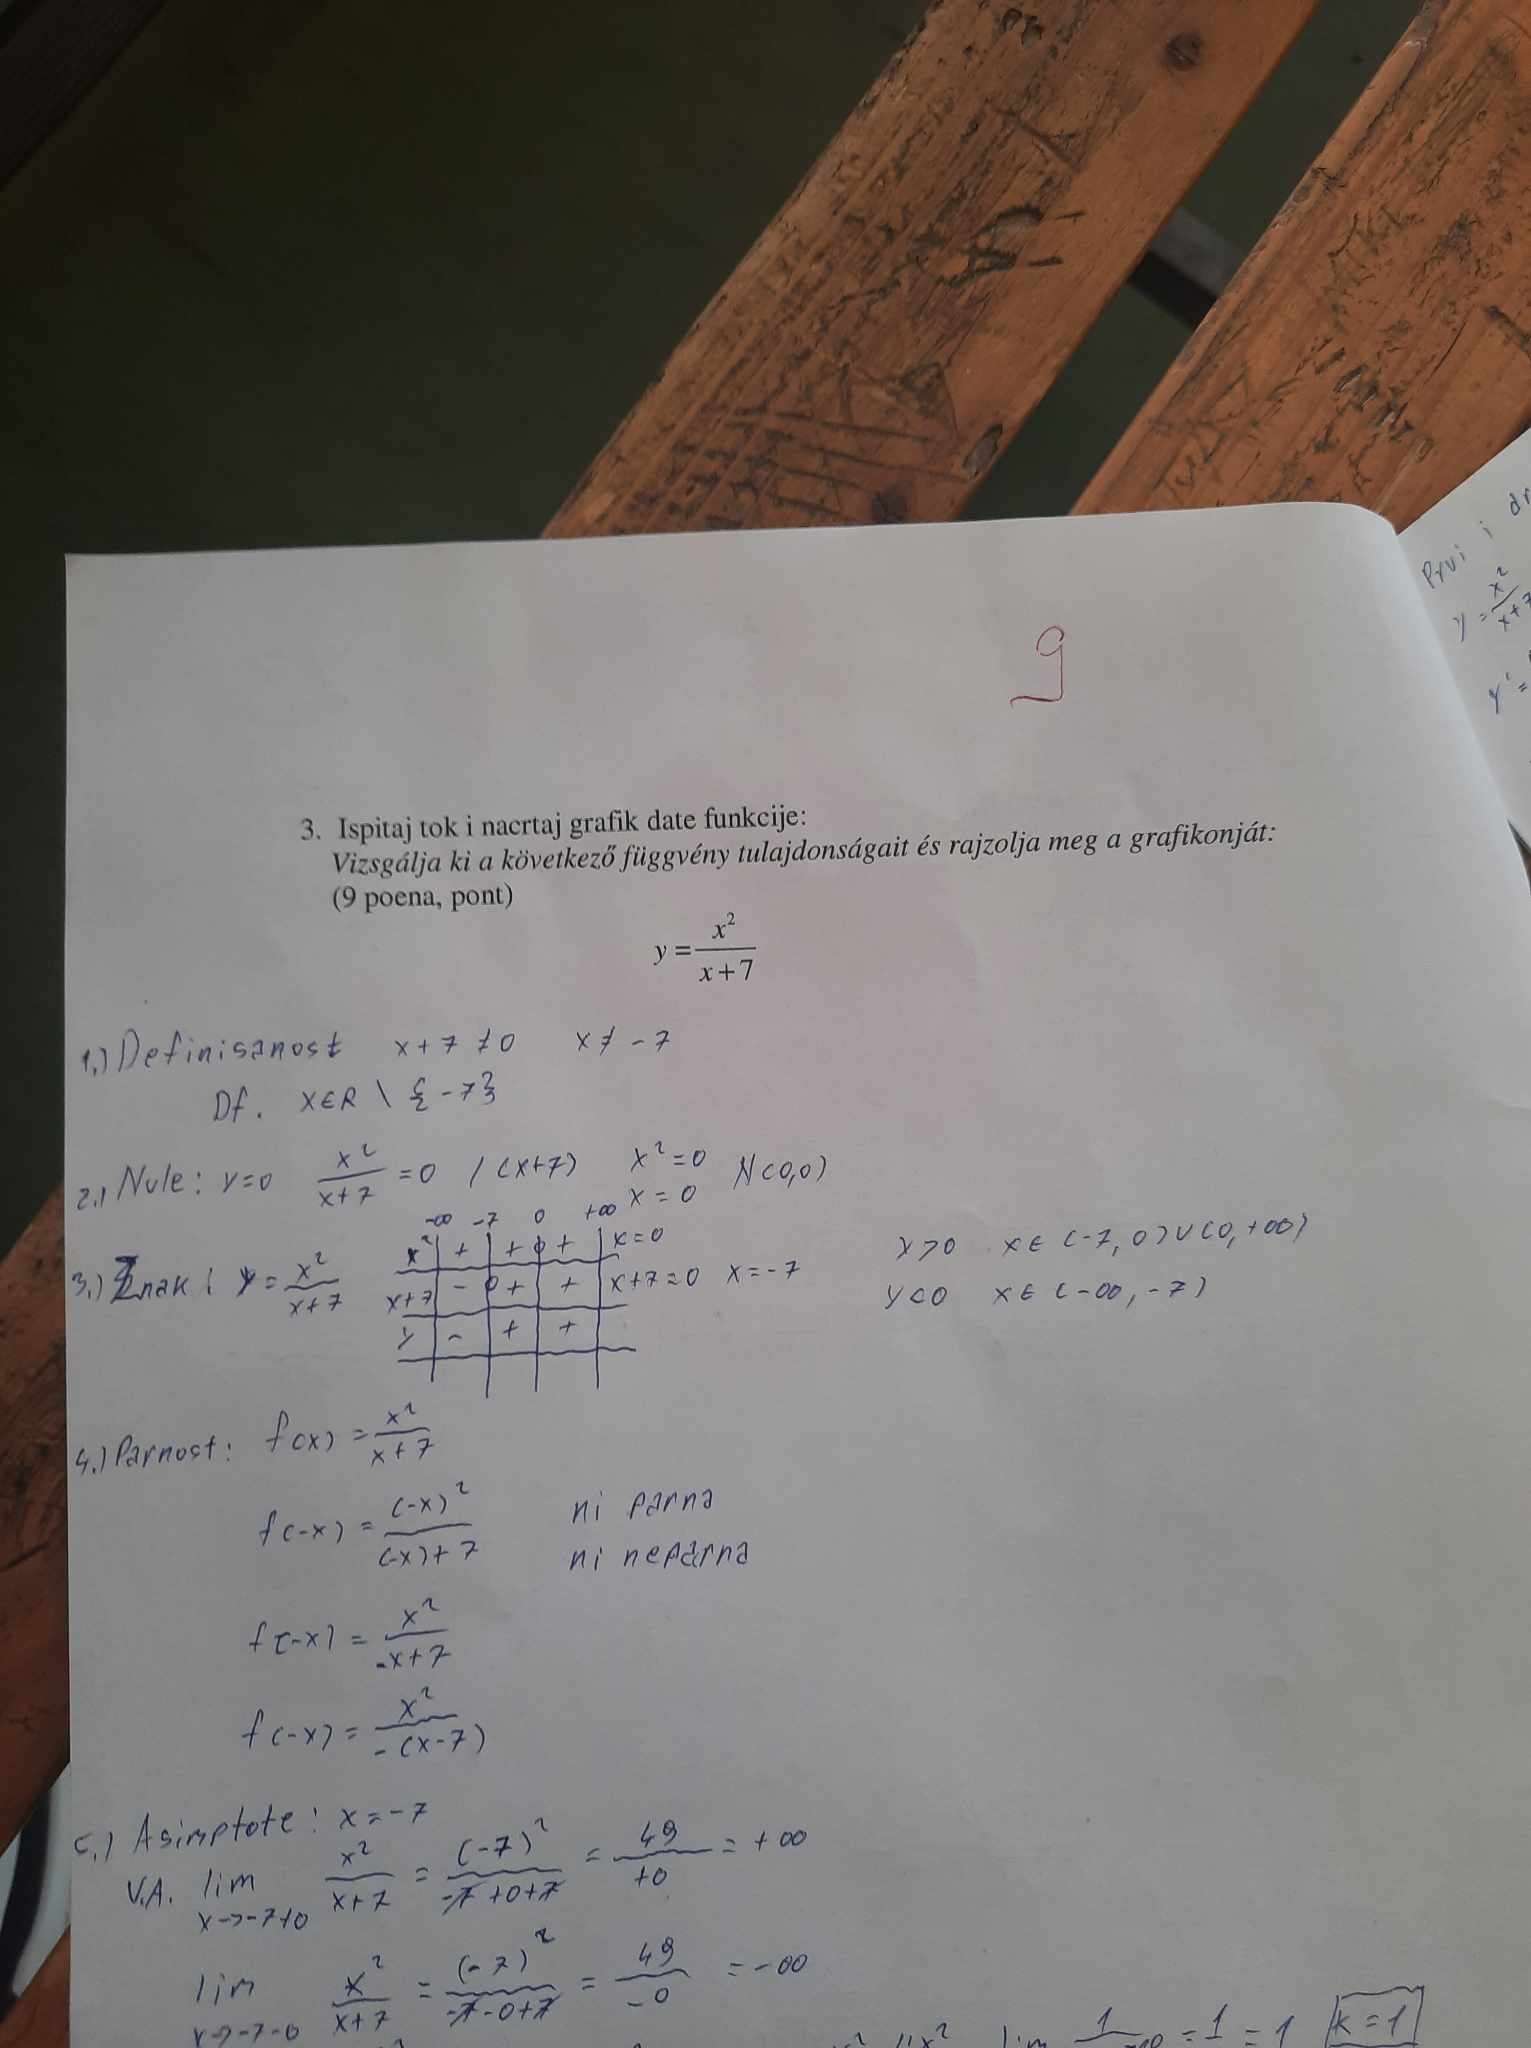 9
Prvi i dr
y = x²/x+7
y' =
3. Ispitaj tok i nacrtaj grafik date funkcije:
Vizsgálja ki a következő függvény tulajdonságait és rajzolja meg a grafikonját:
(9 poena, pont)
y = x²/x+7
1.) Definisanost x+7≠0 x≠-7
Df. x∈R \ {-7}
2.) Nule: y=0 x²/x+7 = 0 /(x+7) x²=0 N(0,0)
x=0
-∞ -7 0 +∞
x² + + 0 + x=0
3.) Znak i y = x²/x+7 x+7 - 0 + + x+7=0 x=-7
y - + +
y>0 x∈(-7,0)∪(0,+∞)
y<0 x∈(-∞,-7)
4.) Parnost: f(x) = x²/x+7
f(-x) = (-x)²/(-x)+7 ni parna
ni neparna
f(-x) = x²/-x+7
f(-x) = x²/-(x-7)
5.) Asimptote: x=-7
V.A. lim x->-7+0 x²/x+7 = (-7)²/-7+0+7 = 49/+0 = +∞
lim x->-7-0 x²/x+7 = (-7)²/-7-0+7 = 49/-0 = -∞
lim = 1 = 1 k=1